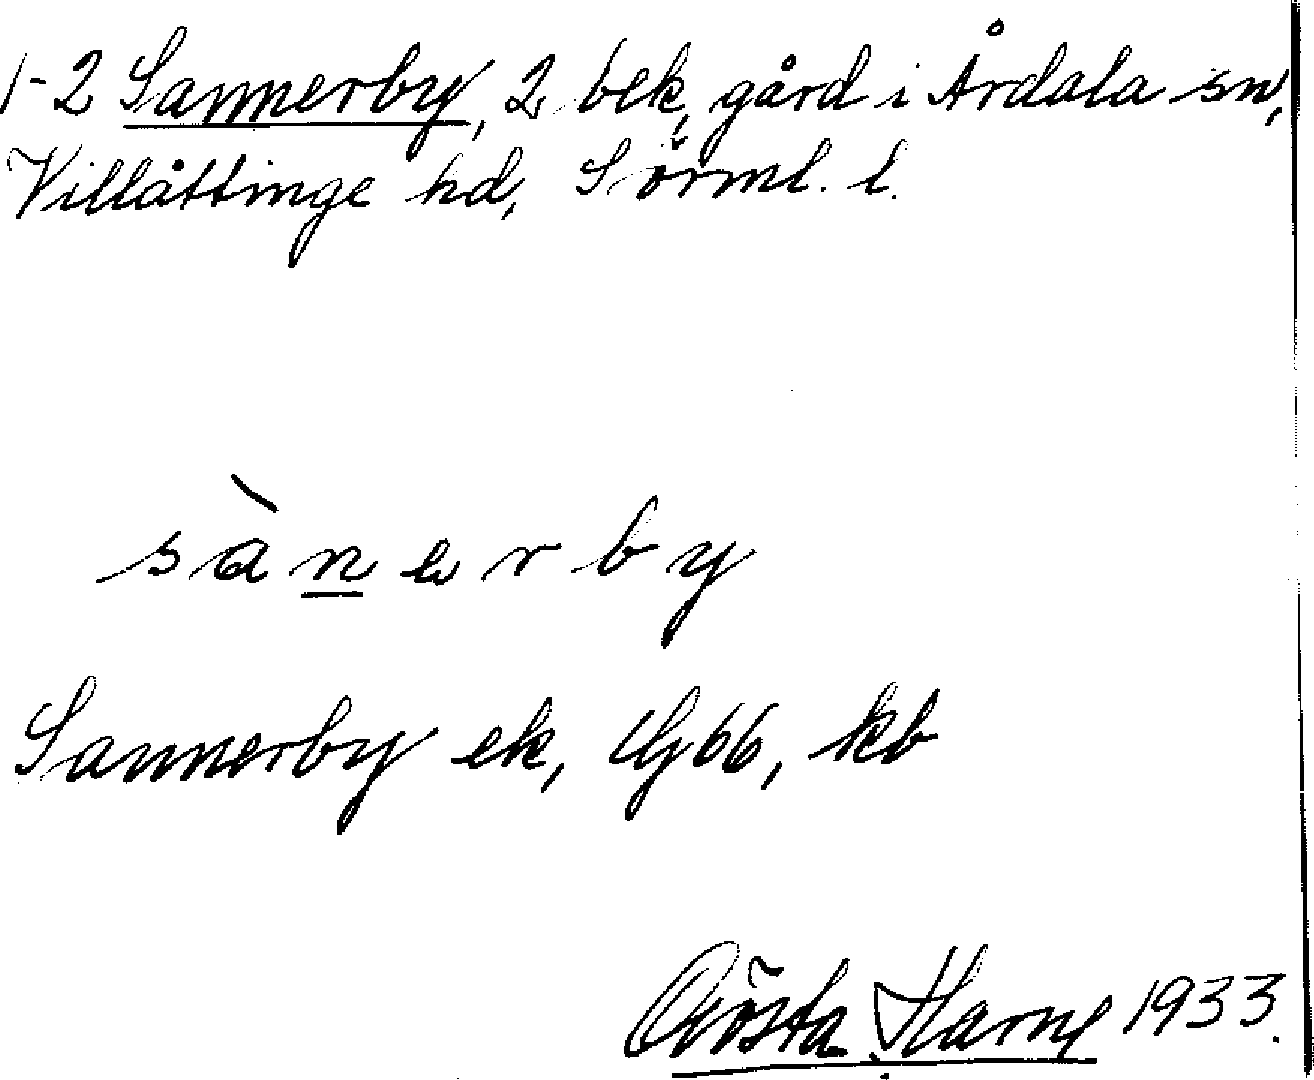 1-2 Sannerby, 2 bek, gård i Årdala sn,
Villåttinge hd, Sörml. l.
sànerby
Sannerby ek, Gg 66, kb
Gösta Harne 1933.